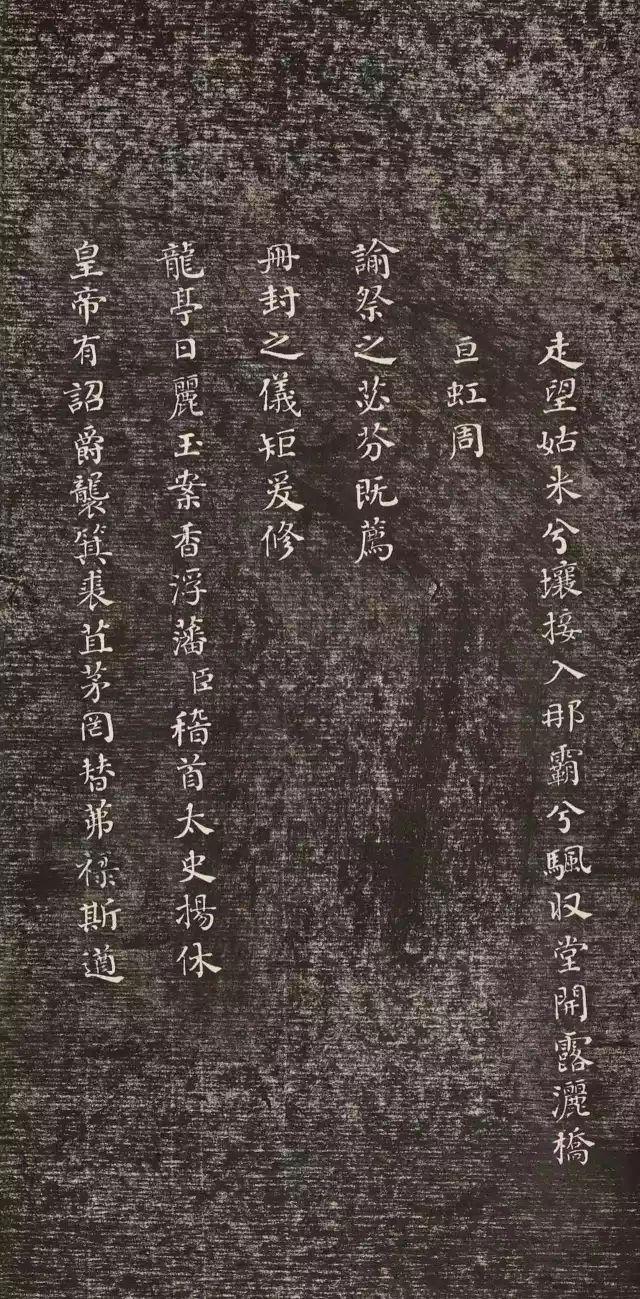 走望姑米兮壤接入那霸兮颿収堂開露灑橋
亘虹周
諭祭之苾芬既薦
冊封之儀矩爰修
龍亭日麗玉案香浮藩臣稽首太史揚休
皇帝有詔爵襲箕裘苴茅罔替茀祿斯遒